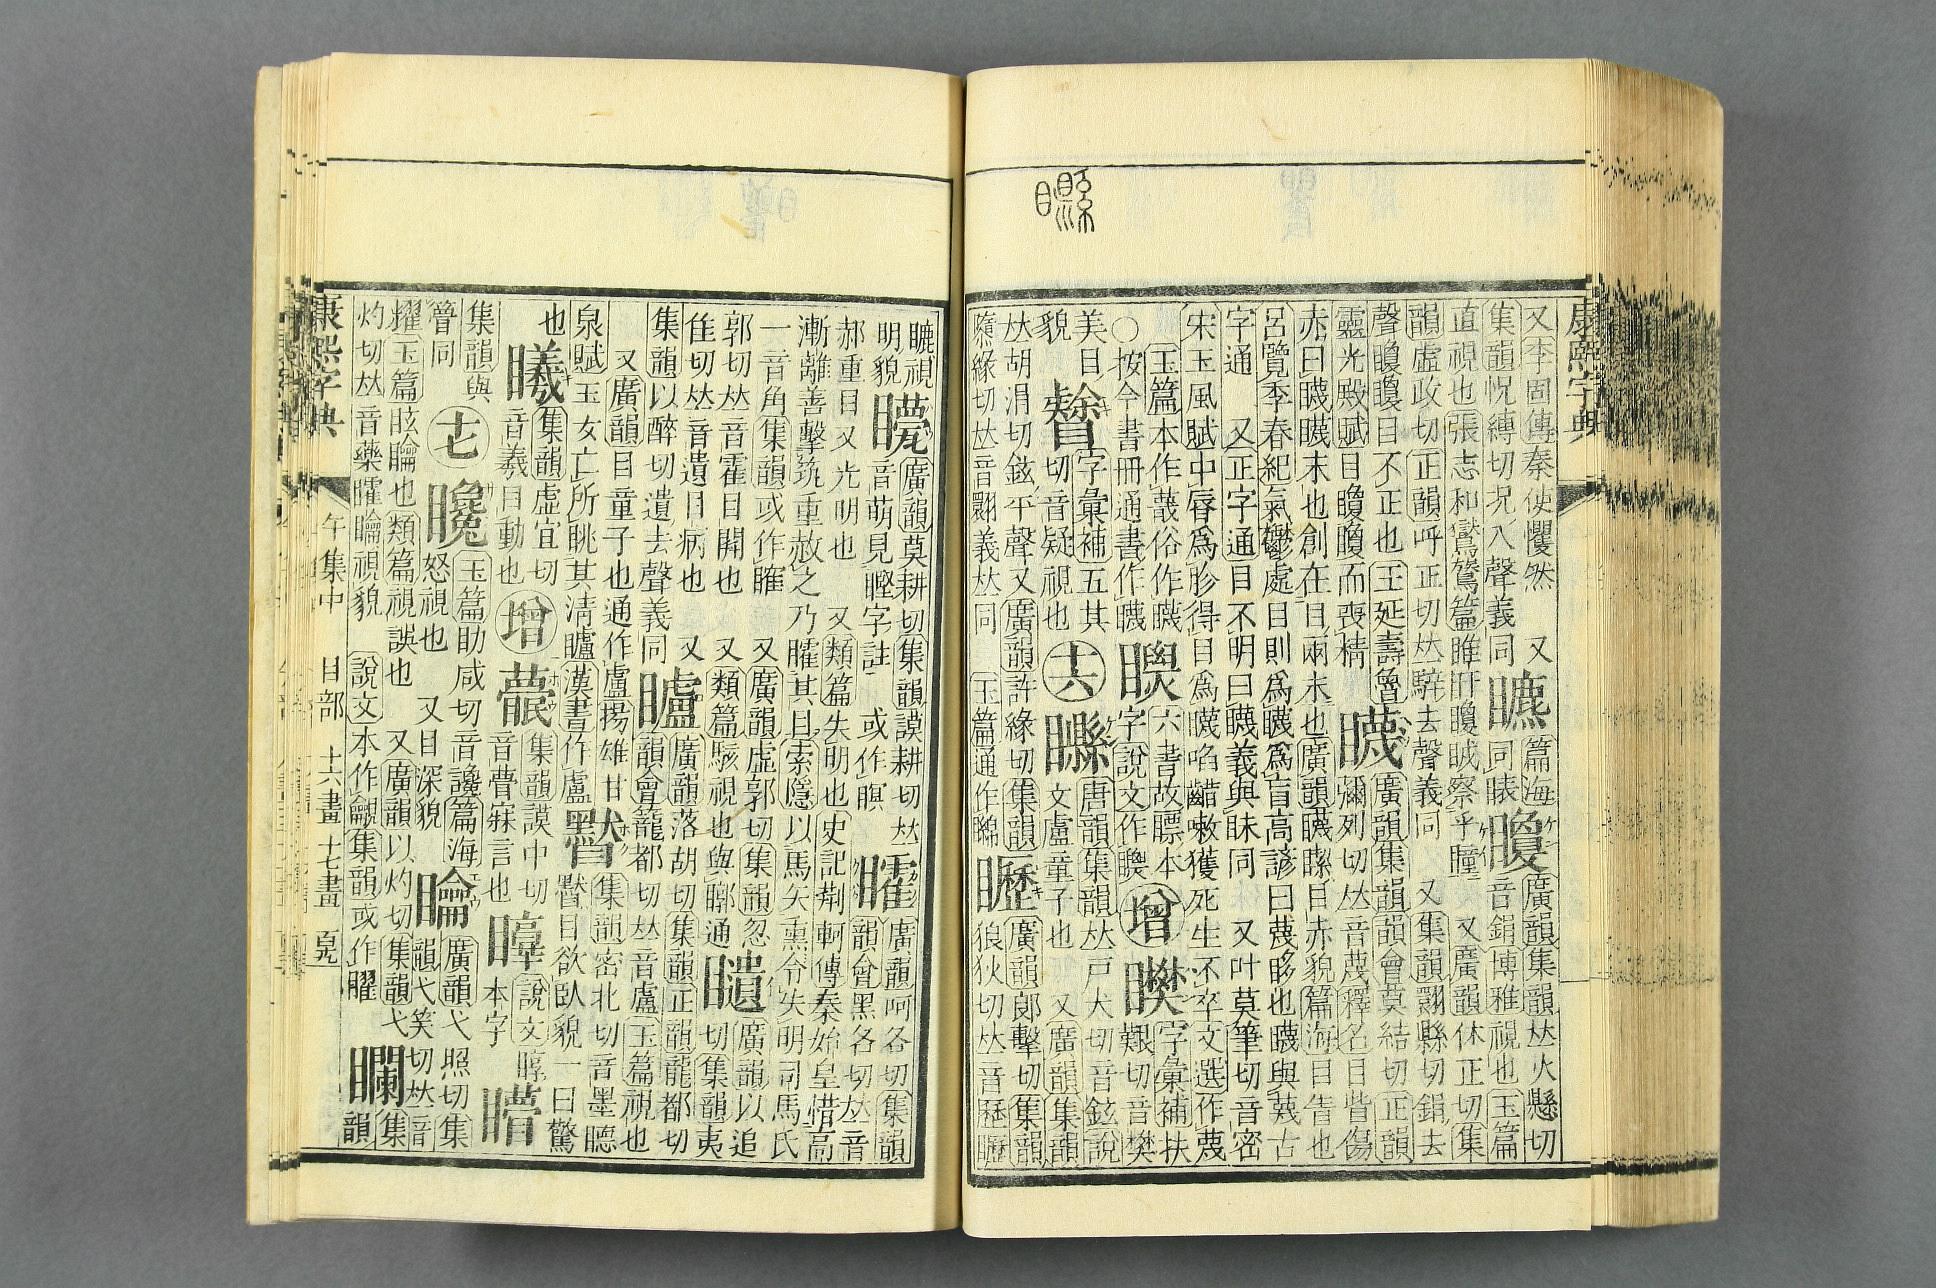 康熙字典
又李固傳秦使懼然 又篇海矎廣韻集韻𠀤火懸切
集韻怳縛切況入聲義同 音鋗博雅視也玉篇
直視也張志和鸑鷟篇睢盱矎察乎瞳 又廣韻休正切集
韻虛政切正韻呼正切𠀤騂去聲義同 又集韻翾縣切鋗去
聲矎矎目不正也王延壽魯䁾廣韻集韻韻會莫結切正韻
靈光殿賦目矎矎而喪精 彌列切𠀤音蔑釋名目眥傷
赤曰䁾䁾末也創在目兩末也廣韻䁾目赤貌篇海目眚也
呂覽季春紀氣鬱處目則爲䁾爲盲高誘曰蔑眵也䁾與蔑古
字通 又正字通目不明曰䁾義與眛同 又叶莫筆切音密
宋玉風賦中脣爲胗得目爲䁾啗齰嗽獲死生不卒文選作蔑
玉篇本作俗作䁾 六書故瞟本 增 字彙補扶
○按今書冊通書作䁾 字說文作 艱切音樊
美目 字彙補五其 十六 矊唐韻集韻𠀤戸犬切音鉉說
貌 切音疑視也 文盧童子也 又廣韻集韻
𠀤胡涓切鉉平聲又廣韻許緣切集韻 廣韻郎擊切集韻
隳緣切𠀤音翾義𠀤同 玉篇通作 狼狄切𠀤音歷
矊
視 矒廣韻莫耕切集韻謨耕切𠀤 矐廣韻呵各切集韻
明貌 音萌見字註 或作瞑 韻會黑各切𠀤音
郝重目又光明也 又類篇失明也史記荆軻傳秦始皇惜高
漸離善擊筑重赦之乃矐其目索隱以馬矢熏令失明司馬氏
一音角集韻或作 又廣韻虛郭切集韻忽 廣韻以追
郭切𠀤音霍目開也 又類篇駭視也與通 切集韻夷
隹切𠀤音遺目病也 又 矑廣韻落胡切集韻正韻龍都切
集韻以醉切遺去聲義同 韻會籠都切𠀤音盧玉篇視也
又廣韻目童子也通作盧揚雄甘 集韻密北切音墨
泉賦玉女亡所眺其淸矑漢書作盧 目欲臥貌一曰驚
也 集韻虛宜切 增 集韻謨中切 說文
音羲目動也 音瞢寐言也 本字
集韻與 十七 玉篇助咸切音讒篇海 廣韻弋照切集
同 怒視也 又目深貌 韻弋笑切𠀤音
耀玉篇眩也類篇視誤也 又廣韻以灼切集韻弋 矙集
灼切𠀤音藥視貌 說文本作集韻或作 韻
康熙字典 午集中 目部 十六畫 十七畫